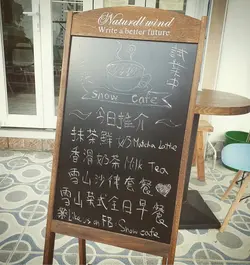 Naturall wind
Write a better future
試業中
Snow Cafe
今日推介
抹茶鮮奶 Matcha Latte
香滑奶茶 Milk Tea
雪山沙律套餐
雪山英式全日早餐
Like us on FB: Snow cafe